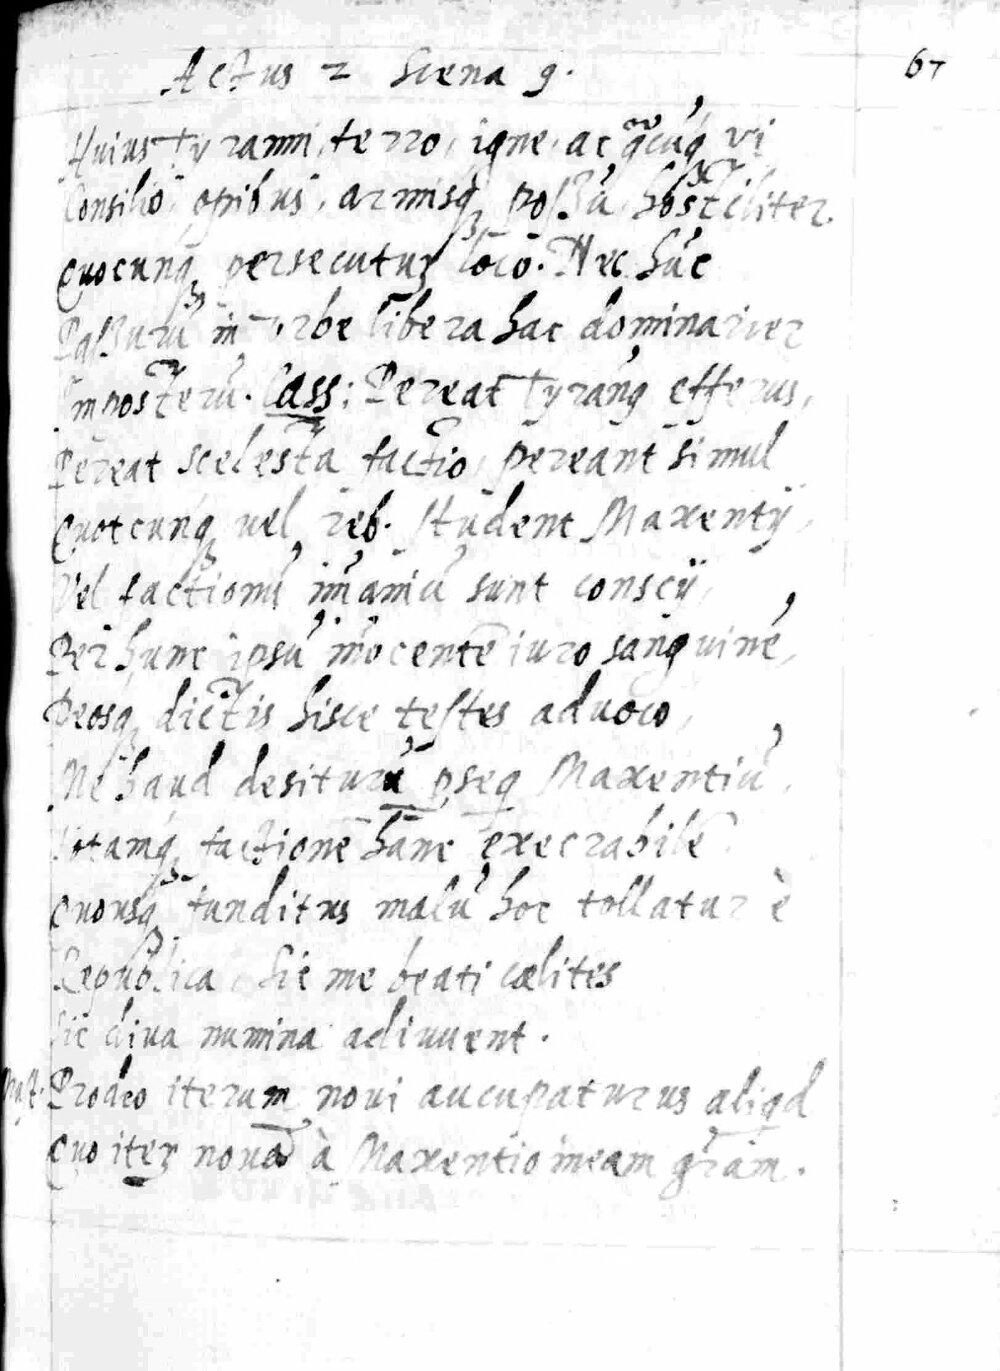 Actus 2 Scena 9. 67
Huius Tyranni, ferro, igne, ac q̃cūq; vi
Consilio, opibus, armisq; possū, hostiliter.
Quocunq; persecutur loco. Nec hūc
Passurū in urbe libera hac dominarier
Imposterū. Cass: Pereat Tyrañ9 efferus,
Pereat scelesta factio, pereant simul
Quotcunq; vel reb. student Maxentij,
Vel factionū im̄aniū sunt conscij,
Per hunc ipsū in̄ocentē iuro sanguinē,
Deosq; dictis hisce testes advoco,
Me haud desiturū pseq Maxentiū,
Totamq; factionē hanc execrabilē
Quousq; funditus malū hoc tollatur è
Republica. Sic me beati cælites
Sic diva numina adiuvent.
Prodeo iterum novi aucupaturus aliqd
Quo iter novā à Maxentio ineam gr̄am.